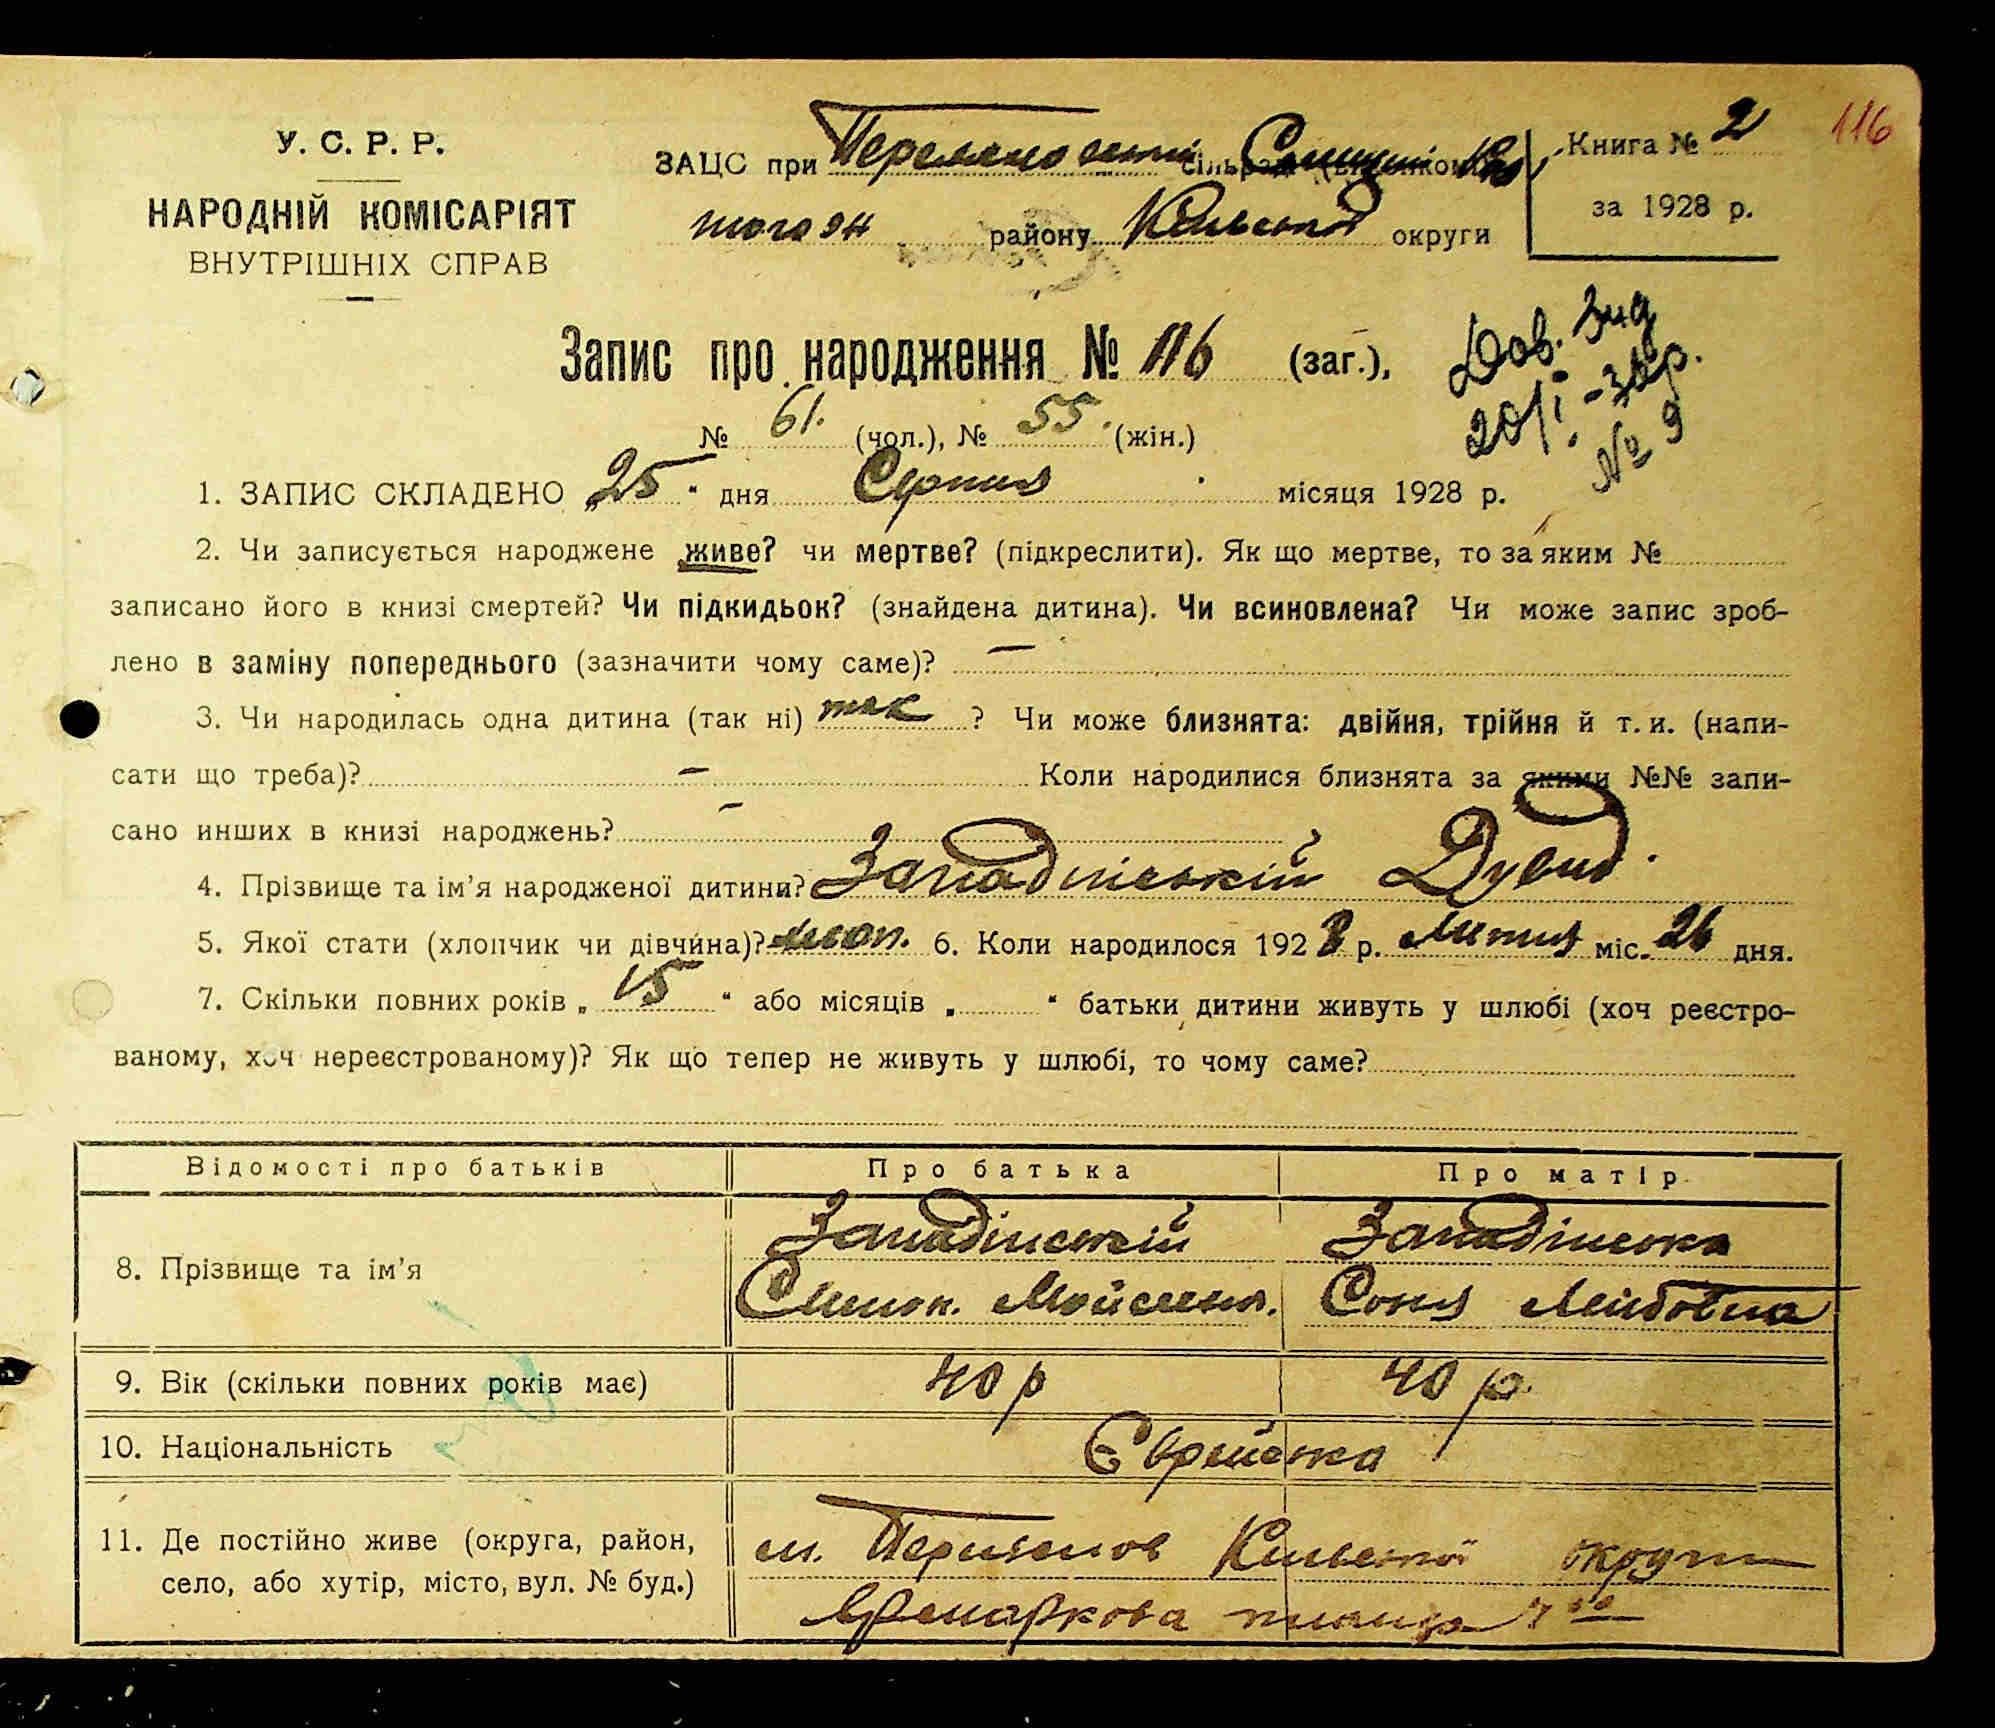 У. С. Р. Р.
НАРОДНІЙ КОМІСАРІЯТ
ВНУТРІШНІХ СПРАВ
ЗАЦС при сільради
того ж району Київської округи
Книга № 2
за 1928 р.
116
Запис про народження № 116 (заг.),
№ 61. (чол.), № 55. (жін.)
Дов.
20/I - 34р.
№ 9
1. ЗАПИС СКЛАДЕНО „25“ дня Серпня місяця 1928 р.
2. Чи записується народжене живе? чи мертве? (підкреслити). Як що мертве, то за яким №
записано його в книзі смертей? Чи підкидьок? (знайдена дитина). Чи всиновлена? Чи може запис зроб-
лено в заміну попереднього (зазначити чому саме)? —
3. Чи народилась одна дитина (так ні) так ? Чи може близнята: двійня, трійня й т. и. (напи-
сати що треба)? – Коли народилися близнята за якими №№ запи-
сано инших в книзі народжень? –
4. Прізвище та ім'я народженої дитини? Западінський Дувид
5. Якої стати (хлопчик чи дівчина)? 6. Коли народилося 1928 р. Липня міс. 26 дня.
7. Скільки повних років „ 15 “ або місяців „ “ батьки дитини живуть у шлюбі (хоч реєстро-
ваному, хоч нереєстрованому)? Як що тепер не живуть у шлюбі, то чому саме?
Відомості про батьків Про батька Про матір
8. Прізвище та ім'я Западінський Западінська
Симон. Мойсеєв. Соня Лейбовна
9. Вік (скільки повних років має) 40 р 40 р.
10. Національність Єврейська
11. Де постійно живе (округа, район, м. Київської округи
село, або хутір, місто, вул. № буд.) Ярмаркова площа